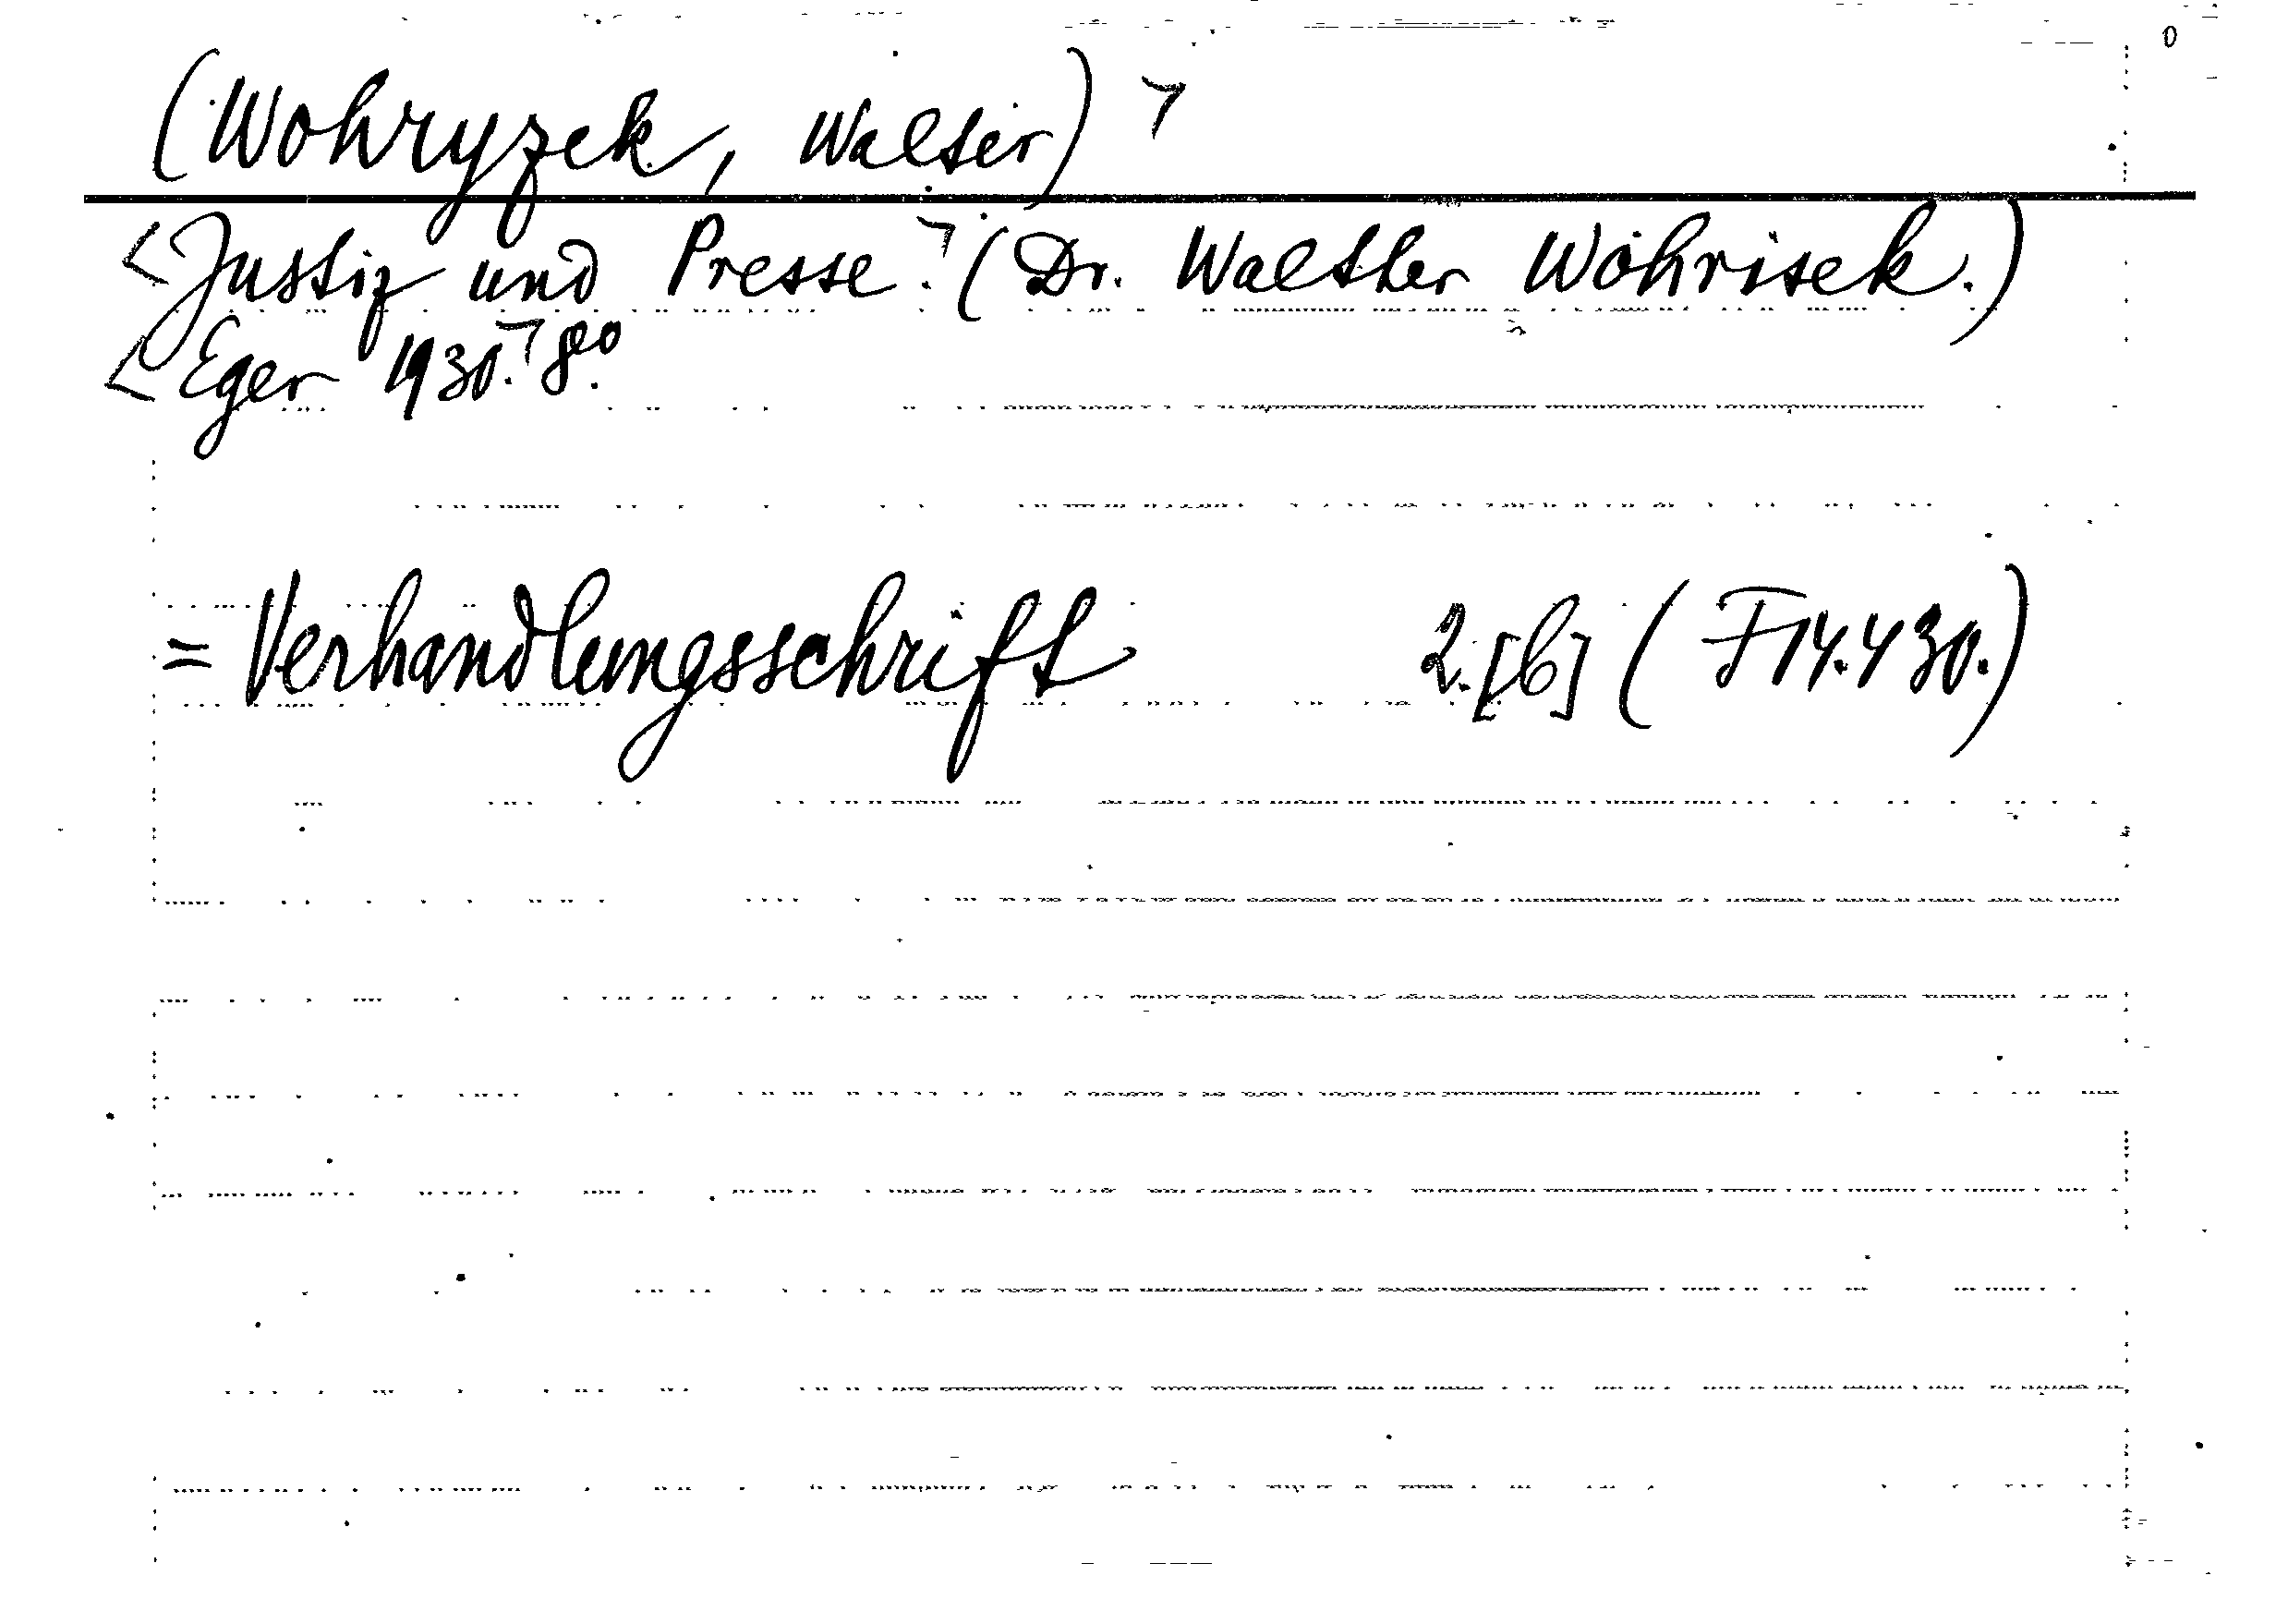 (Wohryzek, Walter) ㄱ
<Justiz und Presse.ㄱ (Dr. Walther Wohrisek.)
<Eger 1930.ㄱ 8°.
= Verhandlungsschrift 2.[b] (F 14.430.)